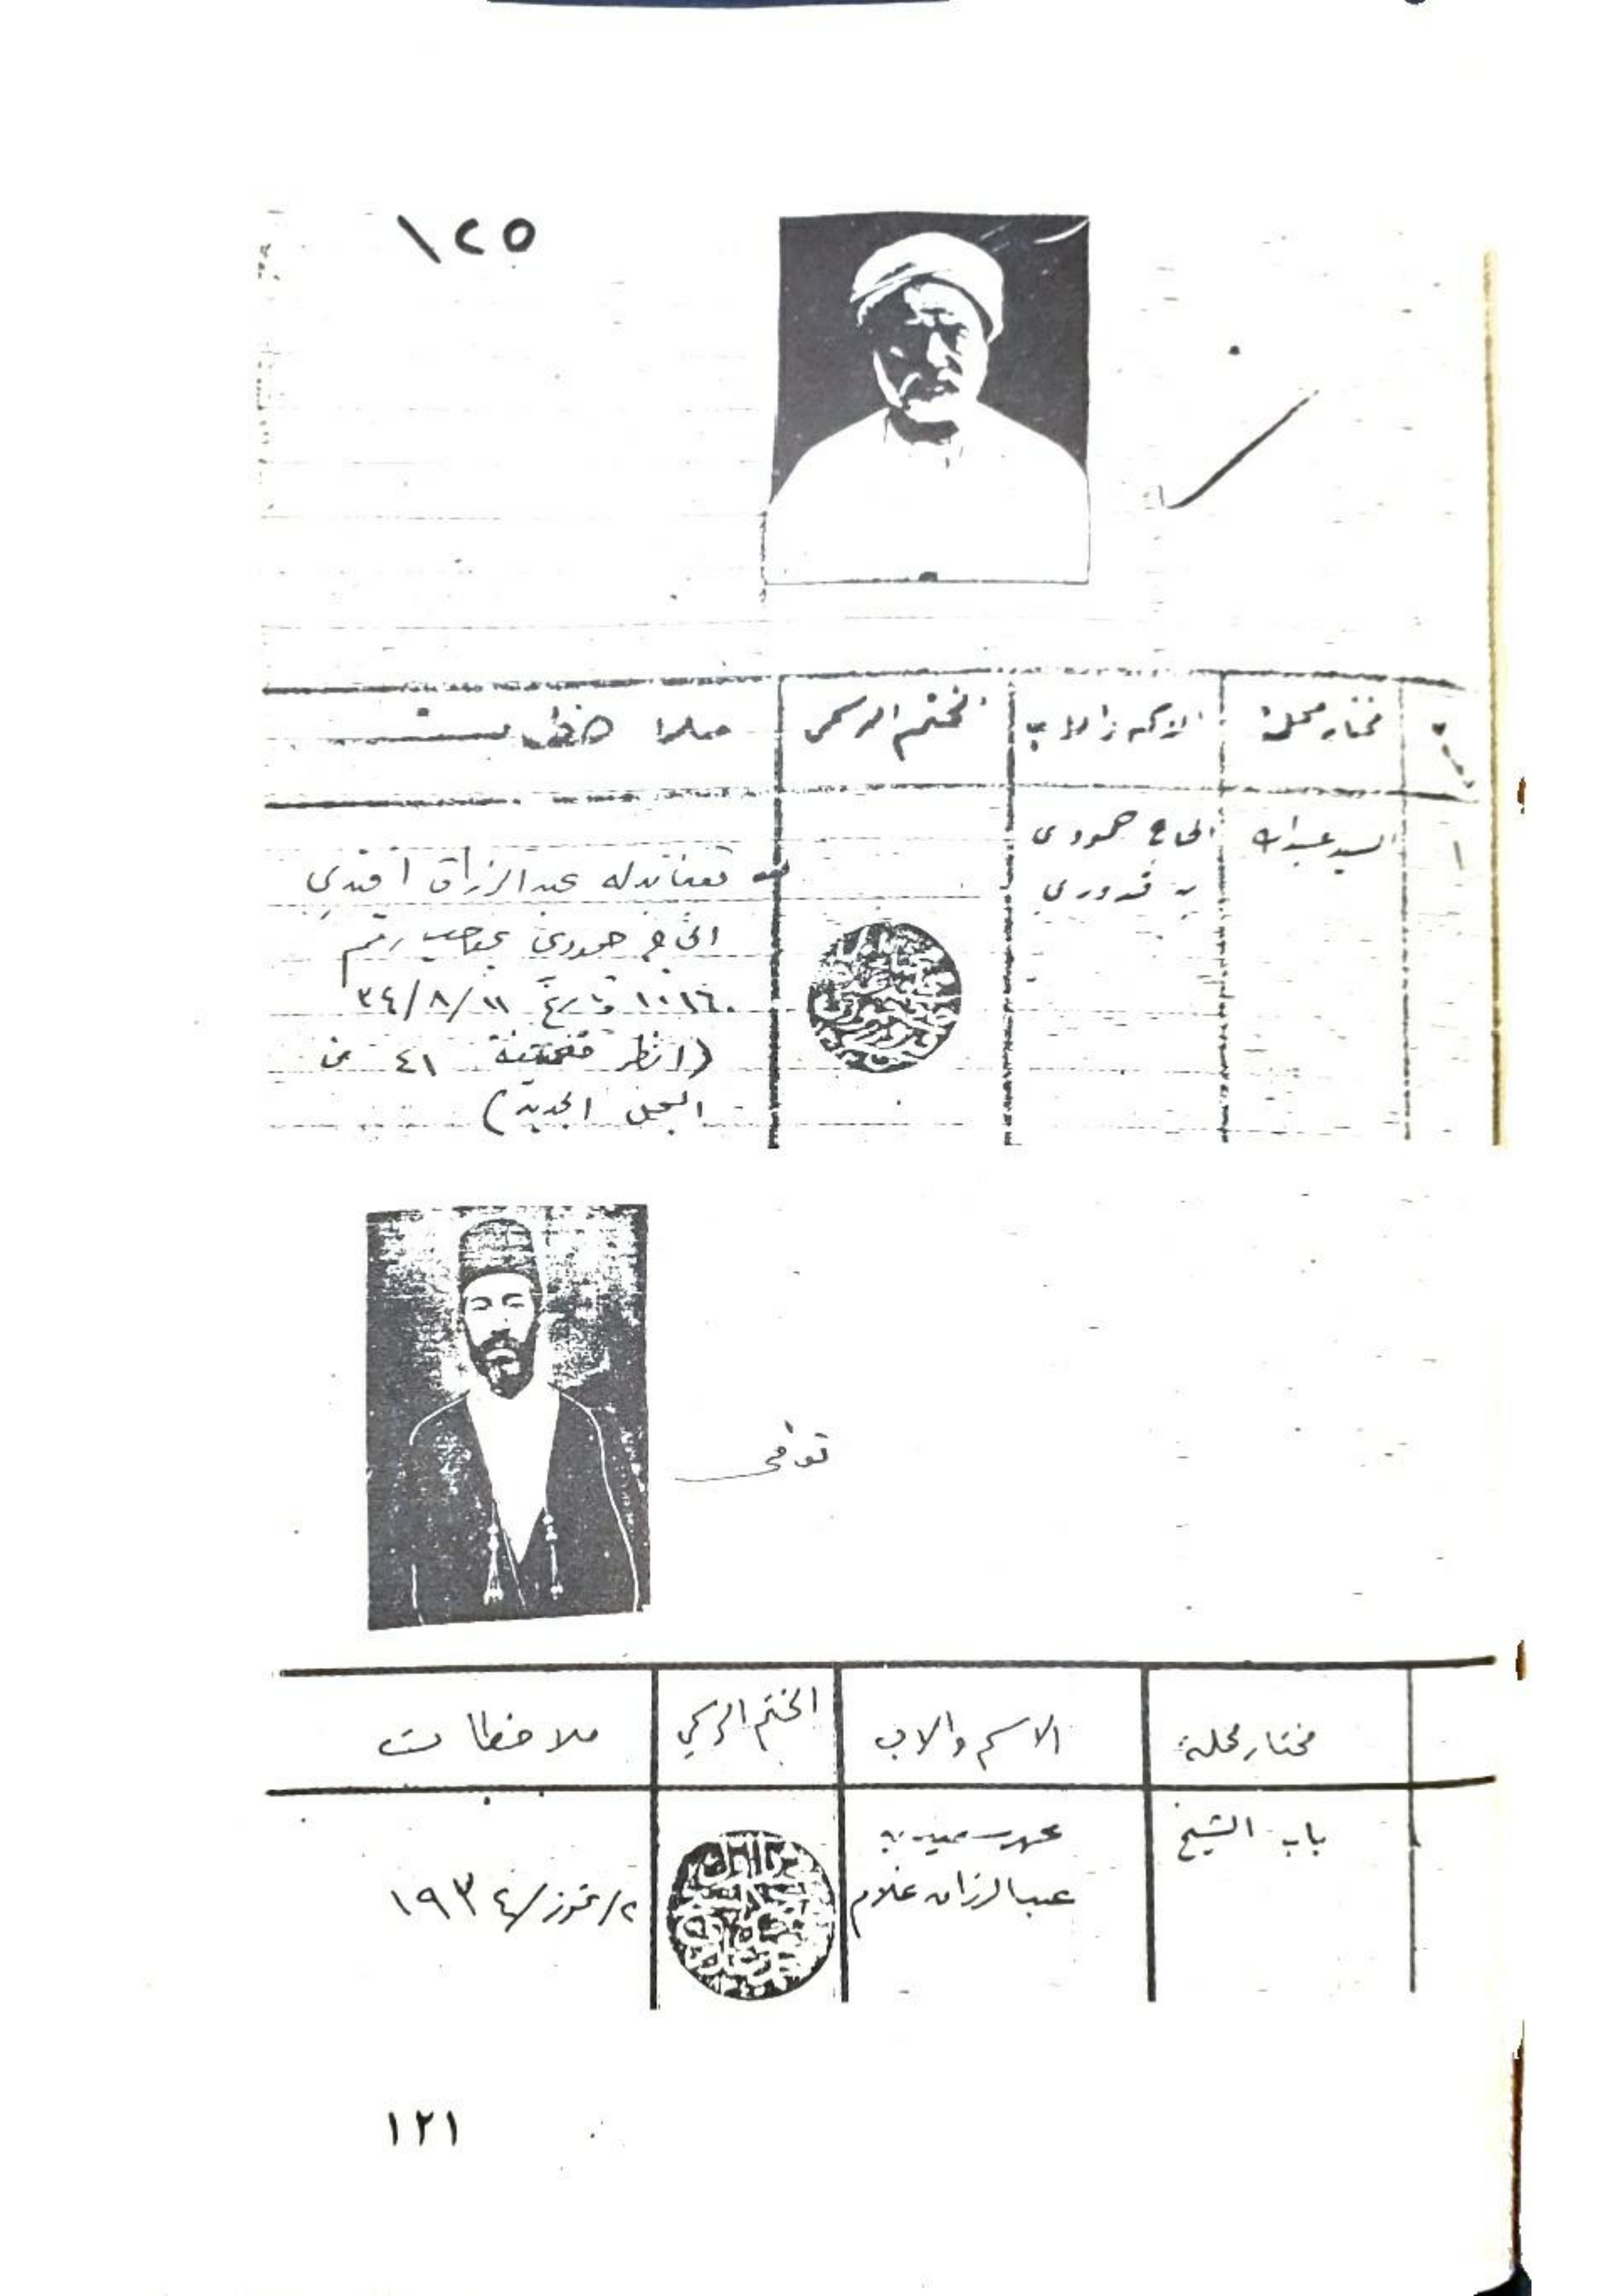 ١٢٥
نمرة مختار محلة الاسم والاب الختم الرسمي ملاحظات
١ السيد عبدالله الحاج حمودي
بن قدوري
عبدالرزاق افندي
الحاج حمودي بموجب رقم
١٠١٦٠ وتاريخ ١١/٨/٣٤
(انظر ٤١ من
السجل الجديد)
توفى
مختار محلة الاسم والاب الختم الرسمي ملاحظات
باب الشيخ
عبدالرزاق غلام
٢/تموز/١٩٣٤
١٢١